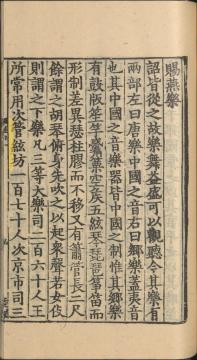 賜燕樂
詔皆從之故樂舞益盛可以觀聽今其樂有
兩部左曰唐樂中國之音右曰鄉樂蓋夷音
也其中國之音樂器皆中國之制惟其鄉樂
有鼓版笙竽觱篥空侯五絃琴琵琶箏笛而
形制差異瑟柱膠而不移又有簫管長二尺
餘謂之胡琴俯身先吹之以起衆聲若女伎
則謂之下樂凡三等大樂司二百六十人王
所常用次管絃坊一百七十人次京市司三